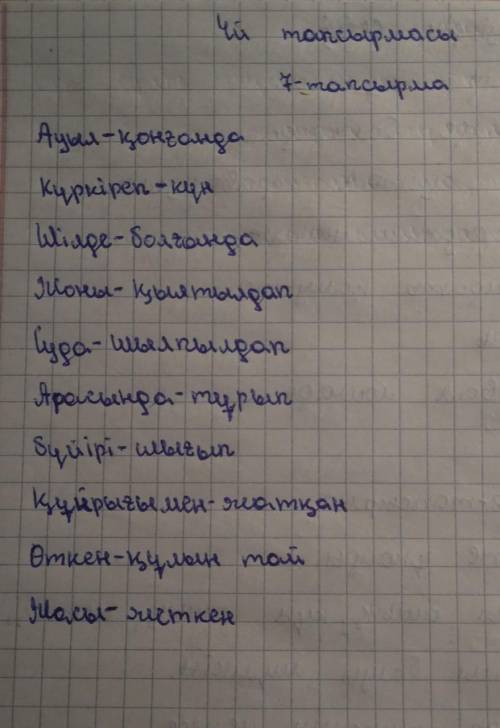 Үй тапсырмасы
7-тапсырма
Ауыл-қонғанда
Күркіреп-күн
Шілде-болғанда
Жоны-қылтылдап
Суда-шылпылдап
Арасында-тұрып
бүйірі-шығып
Құйрығымен-жатқан
Өткен-құлын тай
Жасы-жеткен